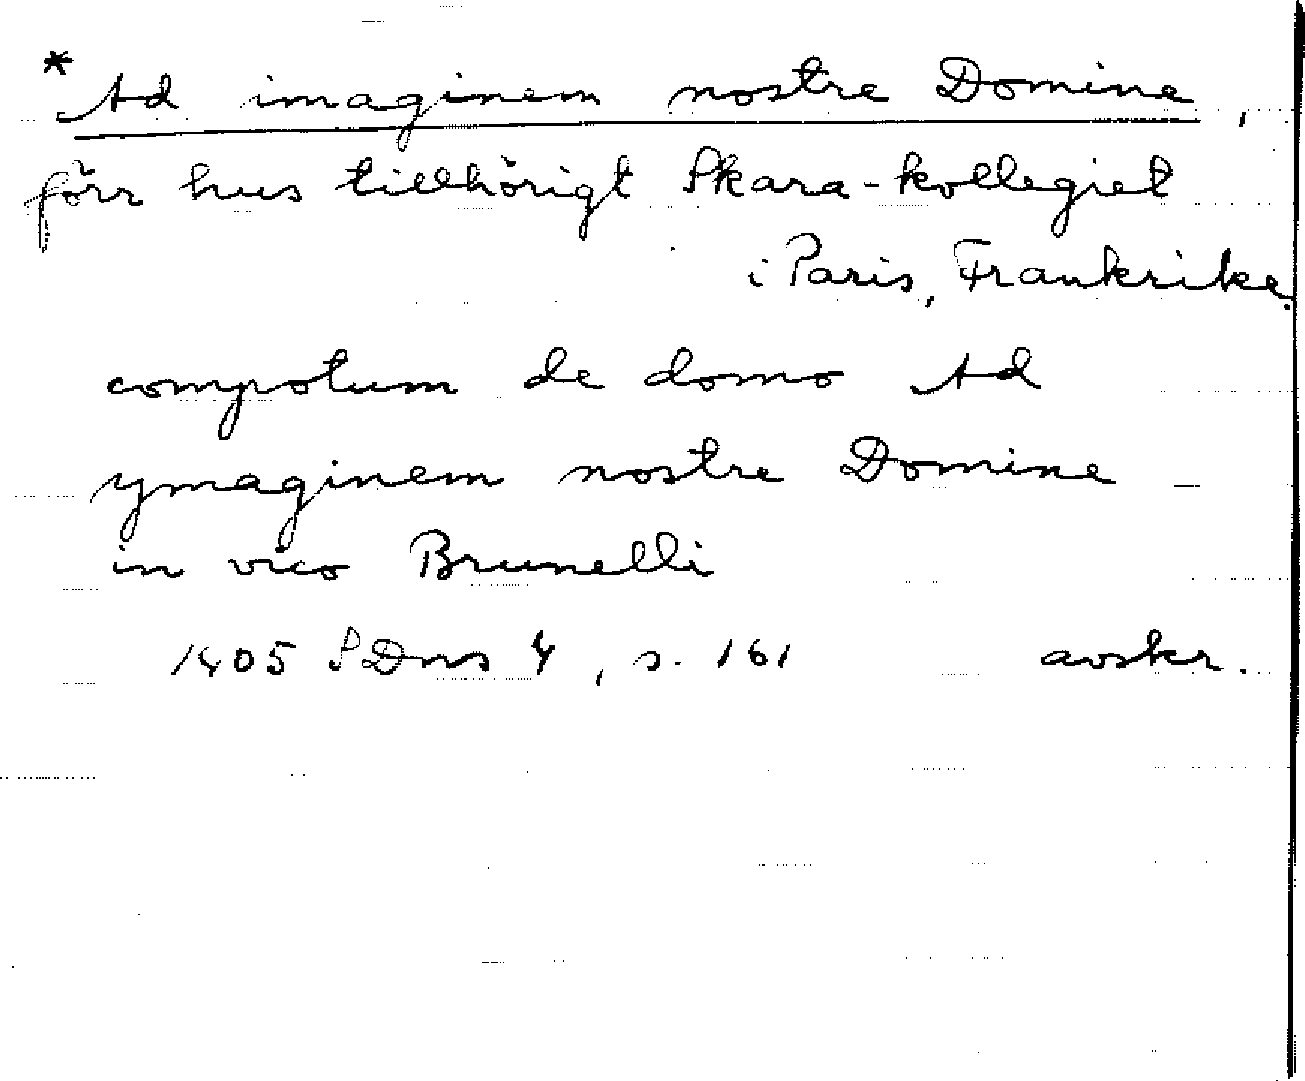 * Ad imaginem nostre Domine,
förr hus tillhörigt Skara-kollegiet
i Paris, Frankrike.
compotum de domo Ad
ymaginem nostre Domine
in vico Brunelli
1405 SDns 4, s. 161 avskr.